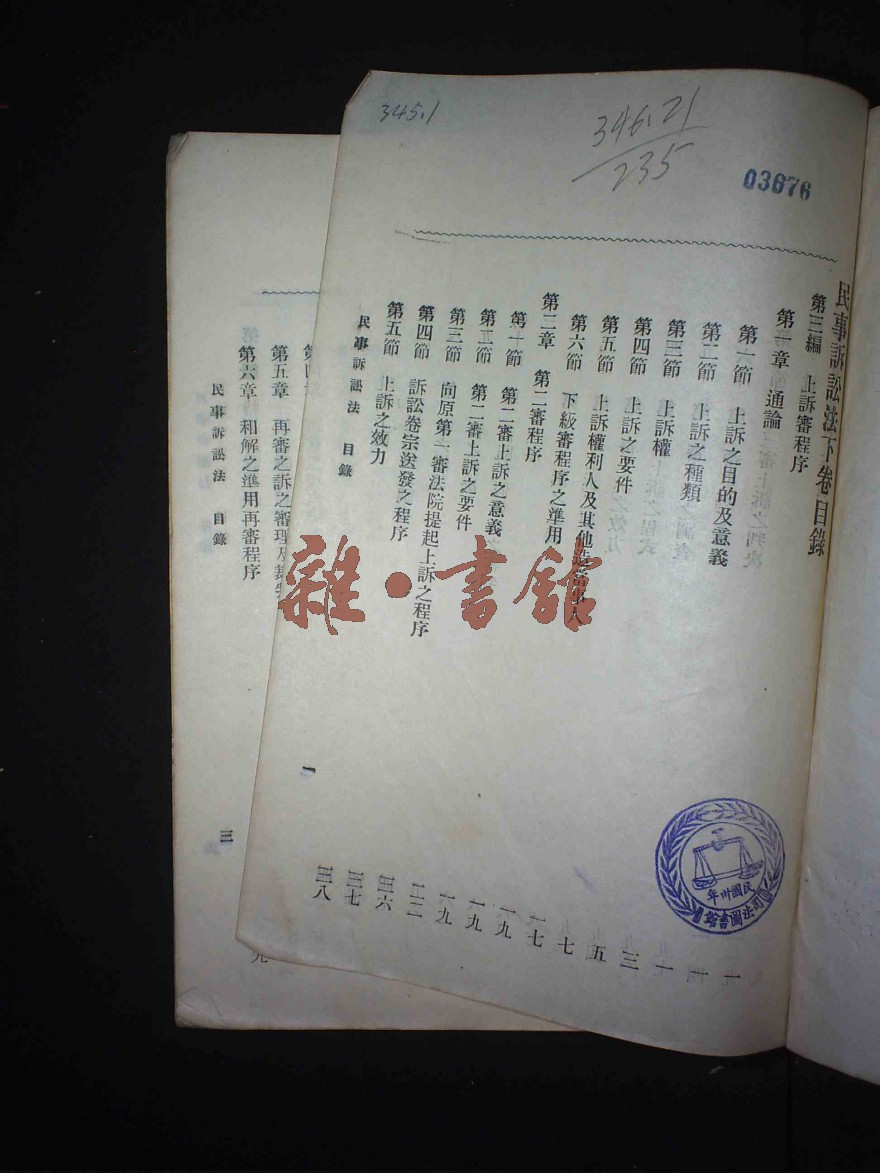 345.1
346.21
235
03676
民事訴訟法下卷目錄
第三編 上訴審程序
第一章 通論
第一節 上訴之目的及意義
第二節 上訴之種類
第三節 上訴權
第四節 上訴之要件
第五節 上訴權利人及其他
第六節 下級審程序之準用
第二章 第二審程序
第一節 第二審上訴之意義
第二節 第二審上訴之要件
第三節 向原第一審法院提起上訴之程序
第四節 訴訟卷宗送發之程序
第五節 上訴之效力
民事訴訟法 目錄
一
一
一
一
三
五
七
七
一九
一九
一九
第五章 再審之訴之審理及
第六章 和解之準用再審程序
民事訴訟法 目錄
三
九
雜·書館
民國卅年
司法圖書館